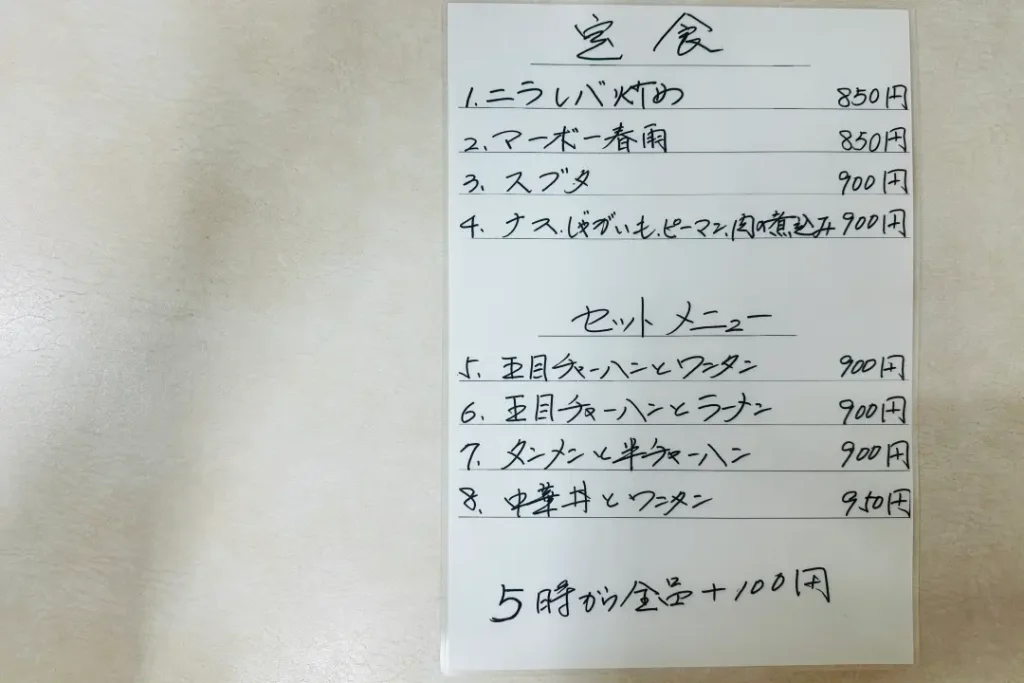 定食
1. ニラレバ炒め 850円
2. マーボー春雨 850円
3. スブタ 900円
4. ナス、じゃがいも、ピーマン、肉の煮込み 900円
セットメニュー
5. 五目チャーハンとワンタン 900円
6. 五目チャーハンとラーメン 900円
7. タンメンと半チャーハン 900円
8. 中華丼とワンタン 950円
5時から全品+100円